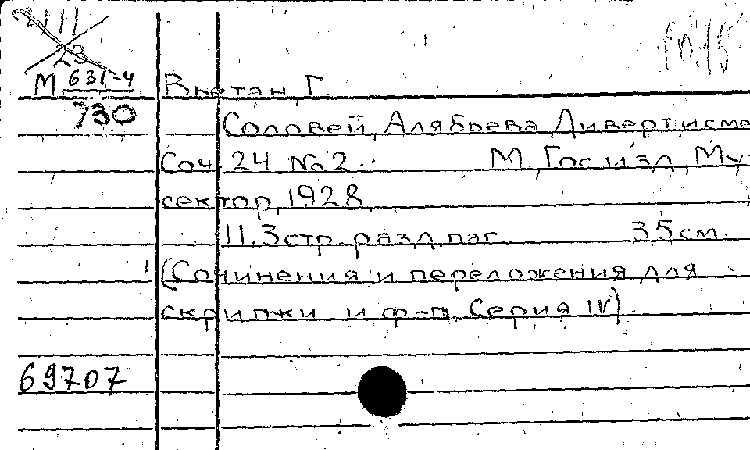 2111
23
М 631-4
730
Вьетан, Г.
Соловей, Алябьева Дивертисме
Соч. 24 №2. М., Гос. изд., Му
сектор, 1928.
11, 3 стр. разд. паг. 35 см.
(Сочинения и переложения для
скрипки и ф-п. Серия IV)
69707